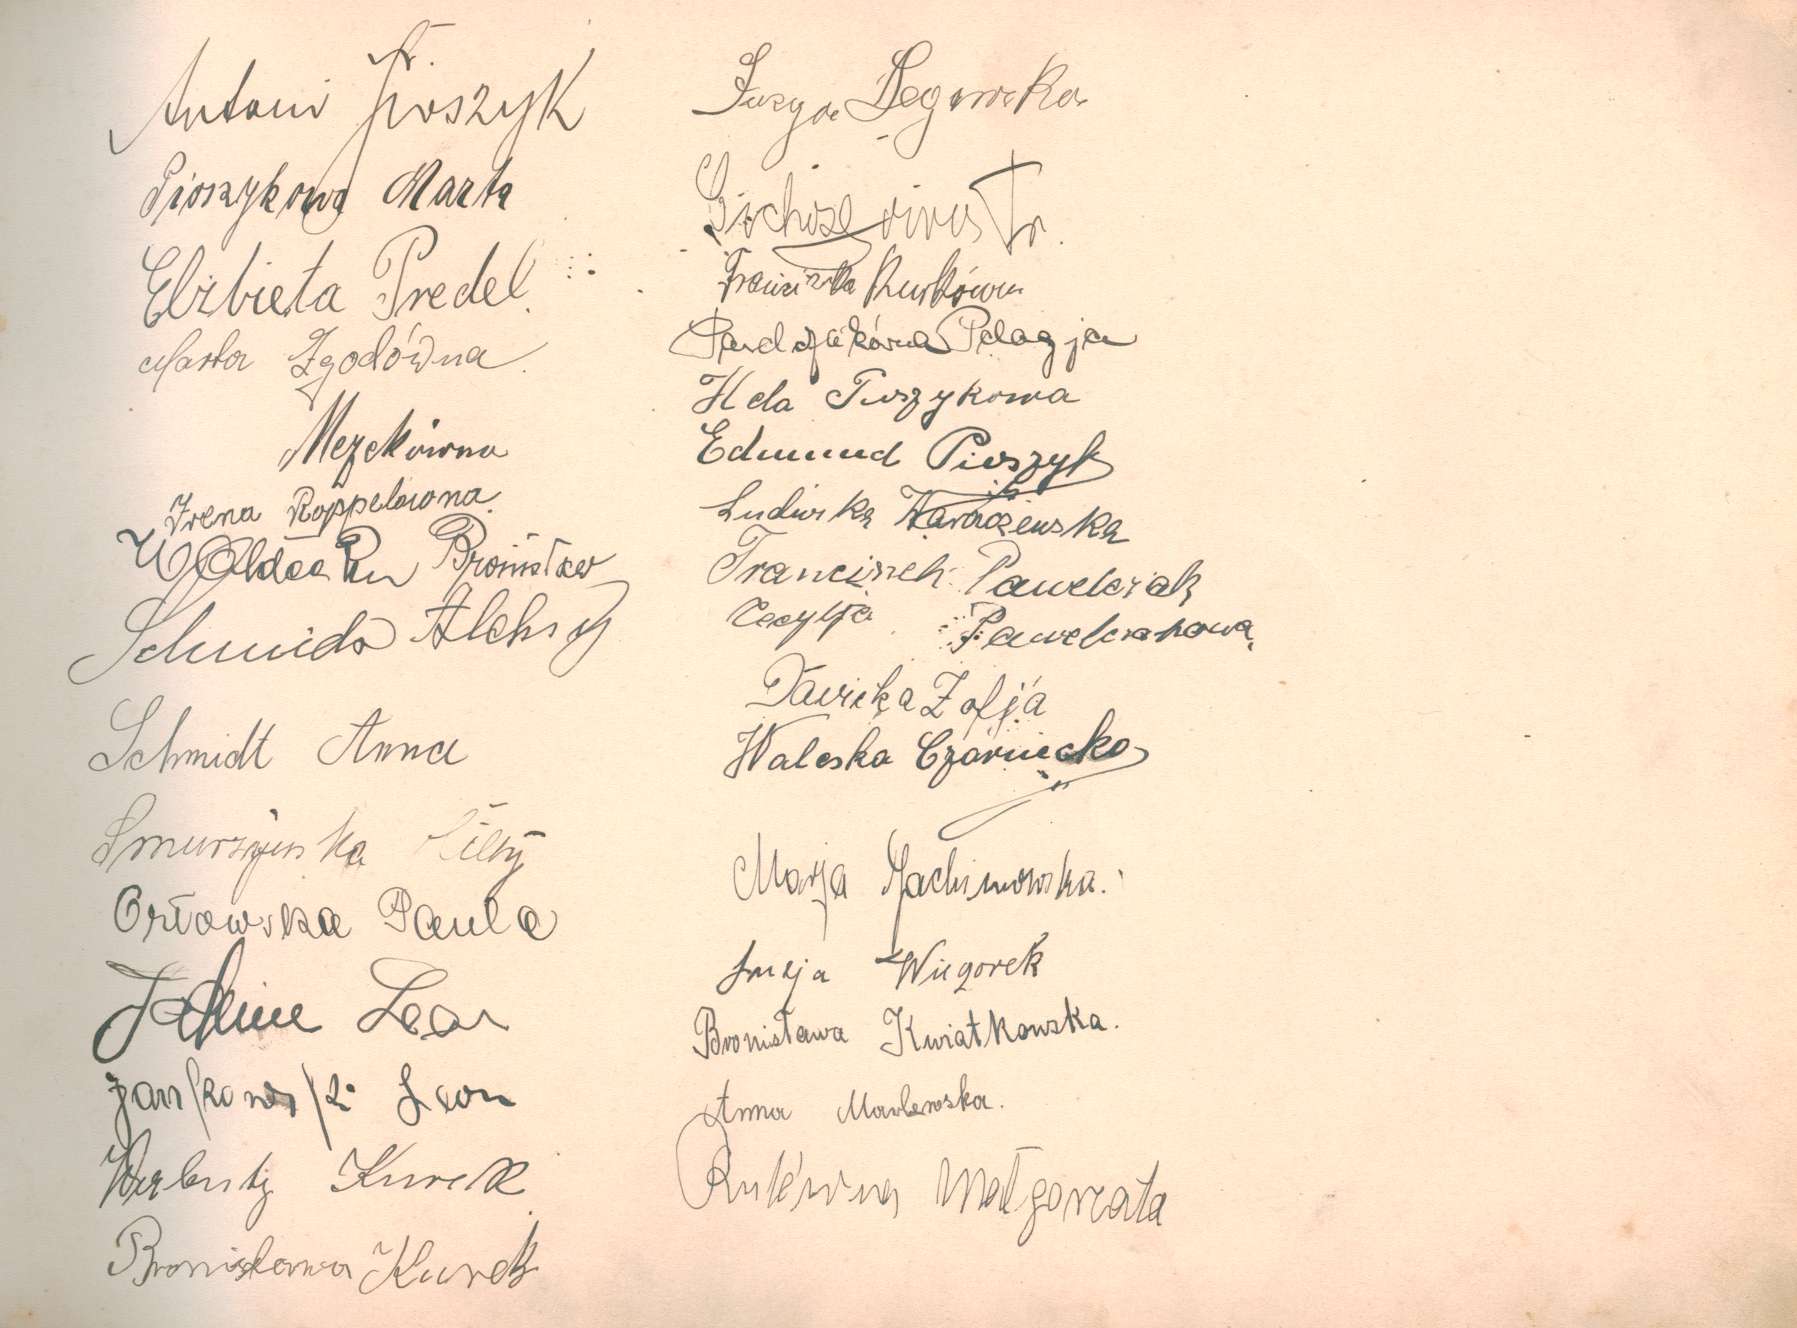 Antoni Pioszyk
Pioszykowa Marta
Elżbieta Predel
Marta Zgodówna
Mezekówna
Irena Roppelówna
Bronisław
Schmidt Aleksy
Schmidt Anna
Smurzyńska
Orłowska Paula
Leon
Jankowski Leon
Kurek
Bronisława Kurek
Łucya
Franciszka Kurkówna
Pelagja
Hela Pioszykowa
Edmund Pioszyk
Ludwika
Franciszek Pawelczak
Cecylja Pawelczakowa
Zofja
Waleska Czarnecka
Marja Jachimowska.
Łucja Wiezorek
Bronisława Kwiatkowska.
Anna Marlewska.
Małgorzata